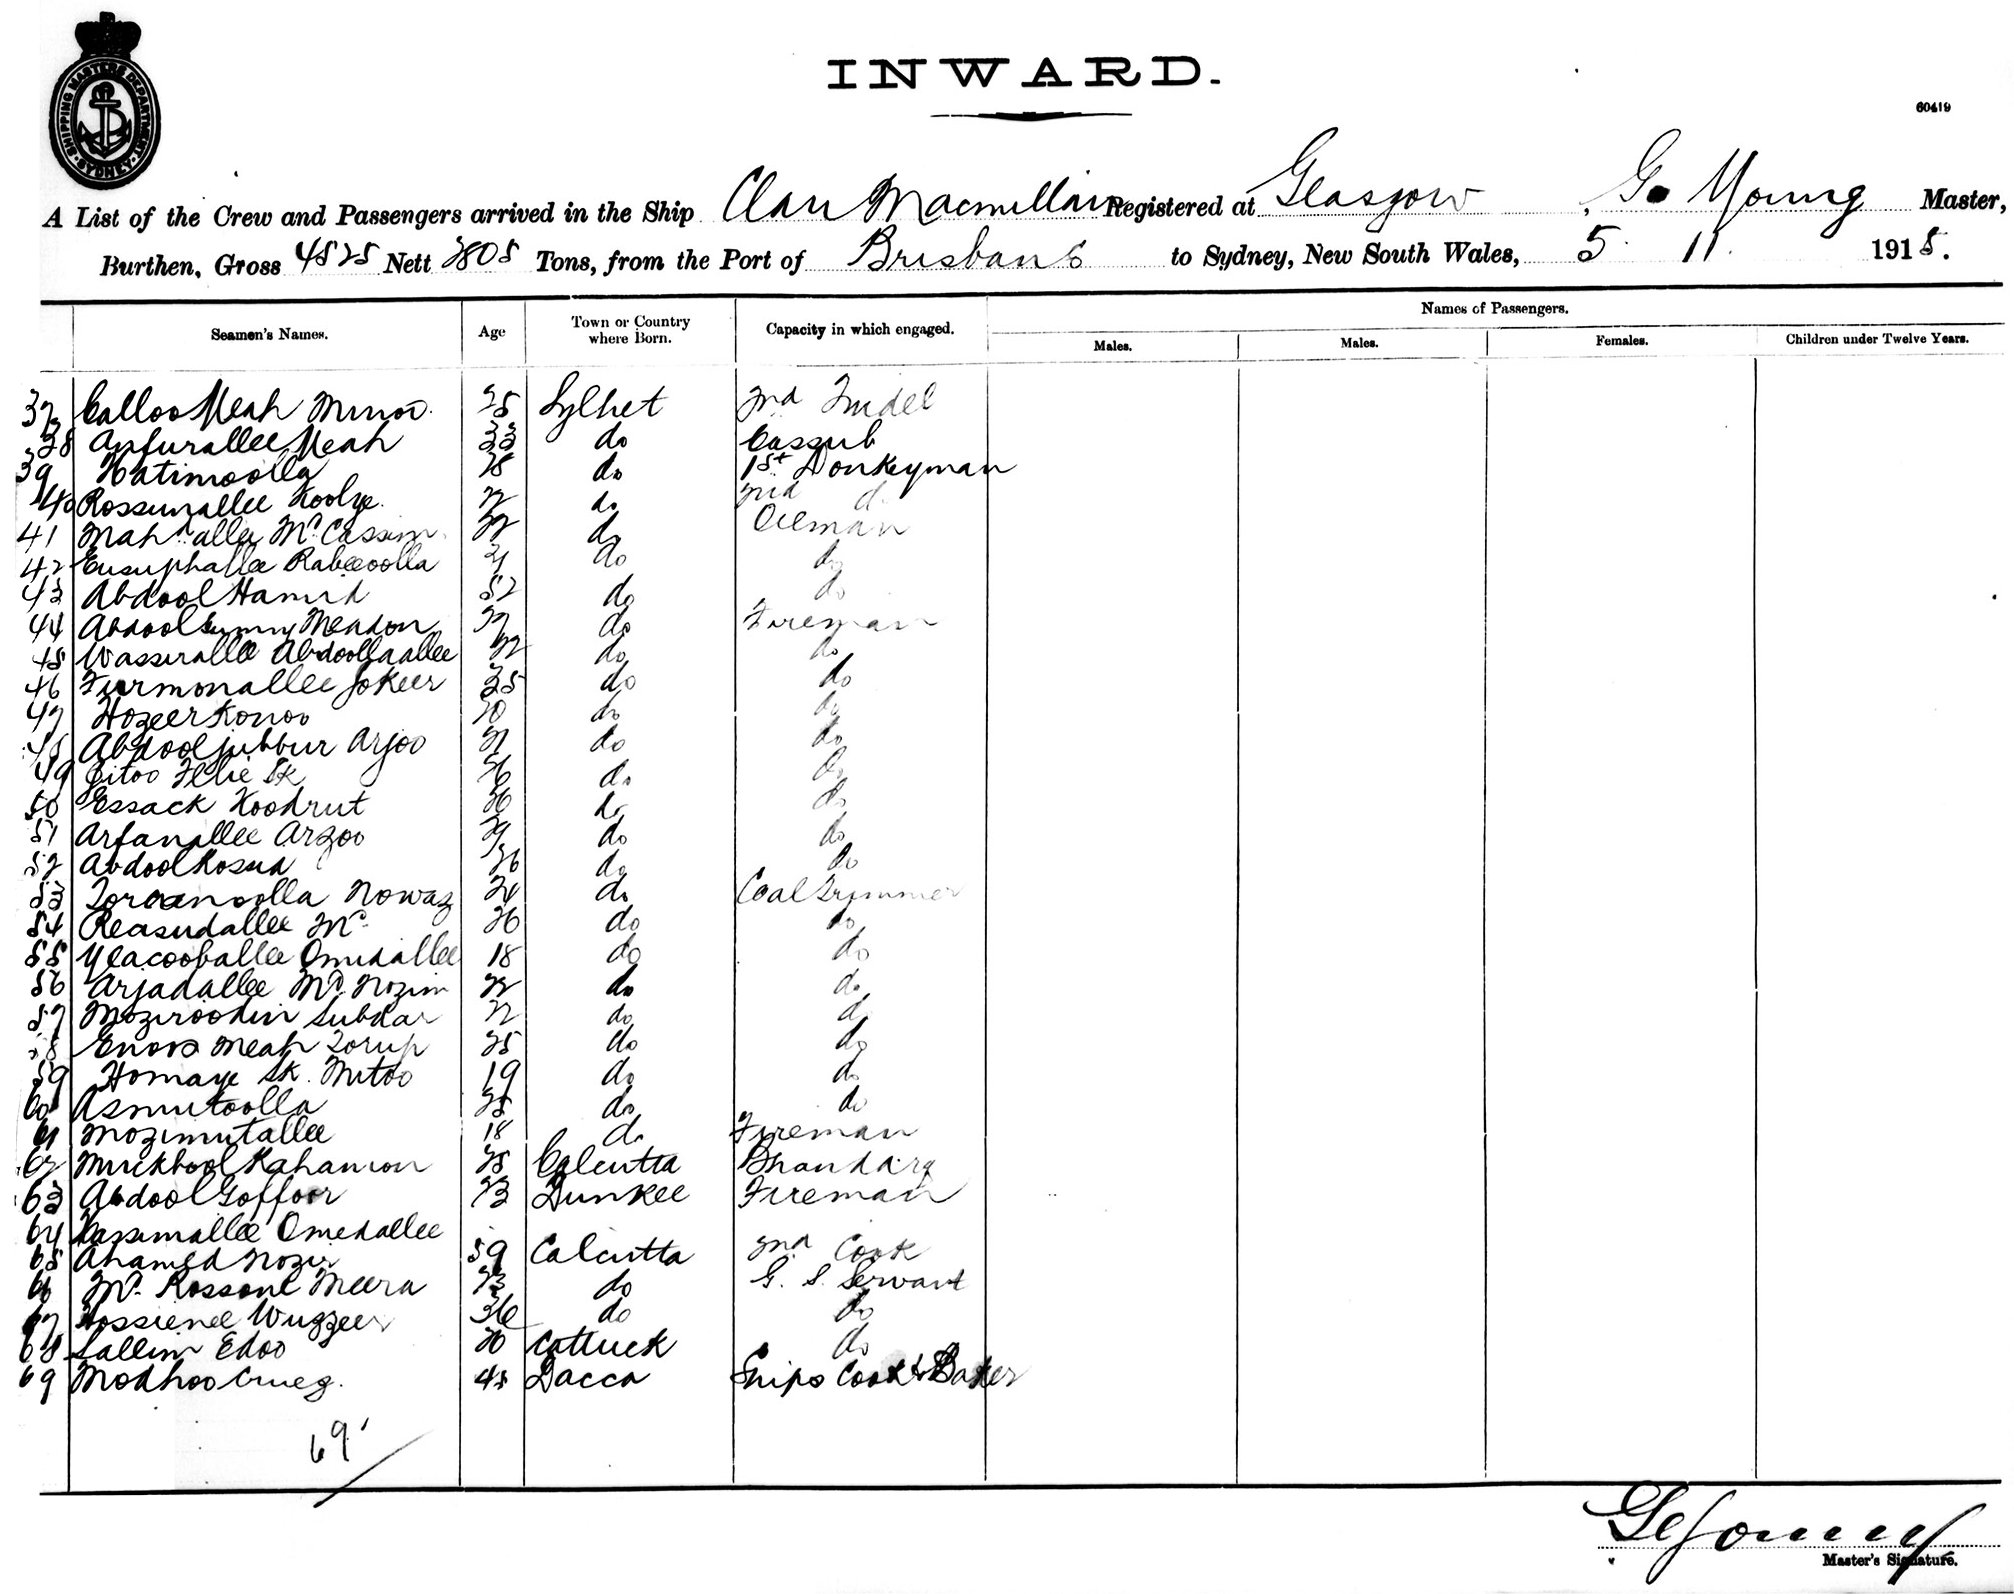 SHIPPING MASTERS DEPARTMENT · SYDNEY ·
INWARD.
60419
A List of the Crew and Passengers arrived in the Ship Clan Macmillan Registered at Glasgow G. Young Master,
Burthen, Gross 4525 Nett 2805 Tons, from the Port of Brisbane to Sydney, New South Wales, 5 11. 1915.
Names of Passengers.
Seamen's Names. Age Town or Country where Born. Capacity in which engaged. Males. Males. Females. Children under Twelve Years.
37 Calloo Meah 25 Sylhet 2nd
38 Meah 33 do Cassub
39 Hatimoolla 28 do 1st Donkeyman
40 Rossunallee do 2nd do
41 allee Md. Cassim do Oilman
42 Eusuphallee Rabeeoolla do do
43 Abdool Hamid 52 do do
44 Abdool do Fireman
45 Wassirallee Abdoollaallee do do
46 Furmonallee Jokeer 35 do do
47 Hozeer Konoo do do
48 Abdool jubbur Arjoo do do
49 Sk do do
50 Essack Koodrut do do
51 Arfanallee Arzoo do do
52 Abdool do do
53 Nowaz 24 do Coal Trimmer
54 Reasudallee Md. 26 do do
55 Yeacooballee Omedallee 18 do do
56 Arjadallee Md. Nozim 22 do do
57 Moziroodin Subdar 22 do do
58 Meah Torup 25 do do
59 Homaye Sk. Mitoo 19 do do
60 Asmutoolla 25 do do
61 Mozimutallee 18 do Fireman
62 Muckbool Rahamon 25 Calcutta Bhandary
63 Abdool Goffoor 23 Dunkee Fireman
64 Kassimallee Omedallee
65 Ahamed Nozir 59 Calcutta 2nd Cook
66 Md. Rossool Meera 23 do G. S. Servant
67 Hossienee Wuzzeer 36 do do
68 Sallim Edoo 20 Cattuck do
69 Modhoo 45 Dacca Ships Cook & Baker
69
Master's Signature.